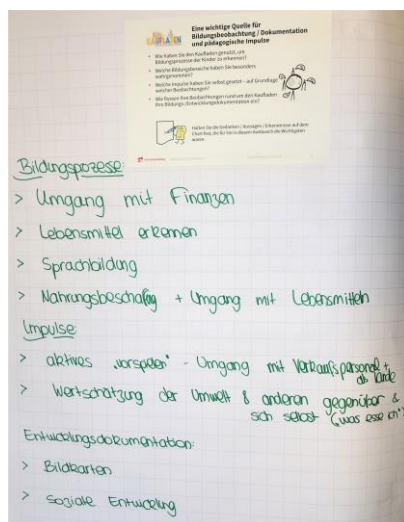 KAUFLADEN
Eine wichtige Quelle für
Bildungsbeobachtung / Dokumentation
und pädagogische Impulse
Wie haben Sie den Kaufladen genutzt, um
Bildungsprozesse der Kinder zu erkennen?
Welche Bildungsbereiche haben Sie besonders
wahrgenommen?
Welche Impulse haben Sie selbst gesetzt – auf Grundlage
welcher Beobachtungen?
Wie fliessen Ihre Beobachtungen rund um den Kaufladen
in Ihre Bildungs-/Entwicklungsdokumentation ein?
Halten Sie die Gedanken / Aussagen / Erkenntnisse auf dem
die für Sie in diesem Austausch die Wichtigsten
waren
Bildungsprozesse:
> Umgang mit Finanzen
> Lebensmittel erkennen
> Sprachbildung
> Nahrungsbeschaffung + Umgang mit Lebensmitteln
Impulse
> aktives „vorspielen" - Umgang mit Verkaufspersonal +
als Kunde
> Wertschätzung der Umwelt & anderen gegenüber &
sich selbst („was esse ich")
Entwicklungsdokumentation:
> Bildkarten
> Soziale Entwicklung